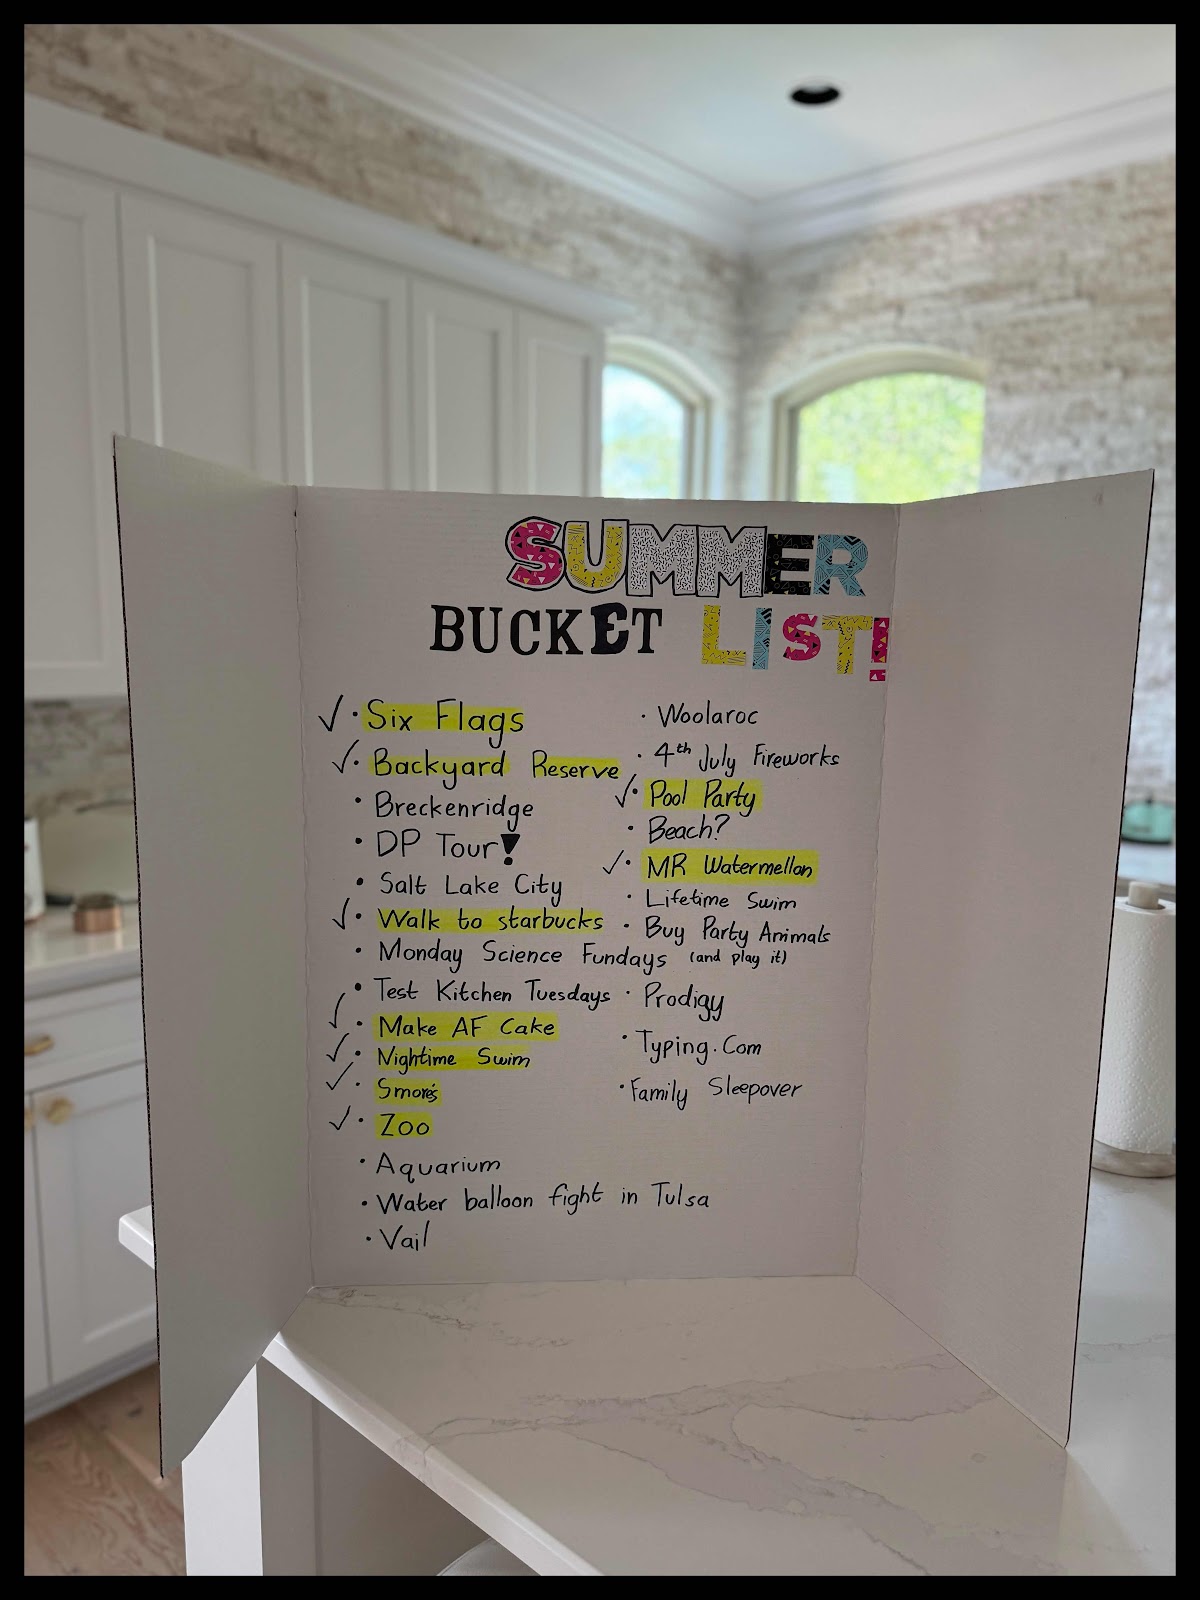 SUMMER
BUCKET LIST!
✓ · Six Flags
✓ · Backyard Reserve
· Breckenridge
· DP Tour!
· Salt Lake City
✓ · Walk to starbucks
· Monday Science Fundays
· Test Kitchen Tuesdays
✓ · Make AF Cake
✓ · Nightime Swim
✓ · Smore's
✓ · Zoo
· Aquarium
· Water balloon fight in Tulsa
· Vail
· Woolaroc
· 4th July Fireworks
✓ · Pool Party
· Beach?
✓ · MR Watermellon
· Lifetime Swim
· Buy Party Animals
(and play it)
· Prodigy
· Typing.Com
· Family Sleepover